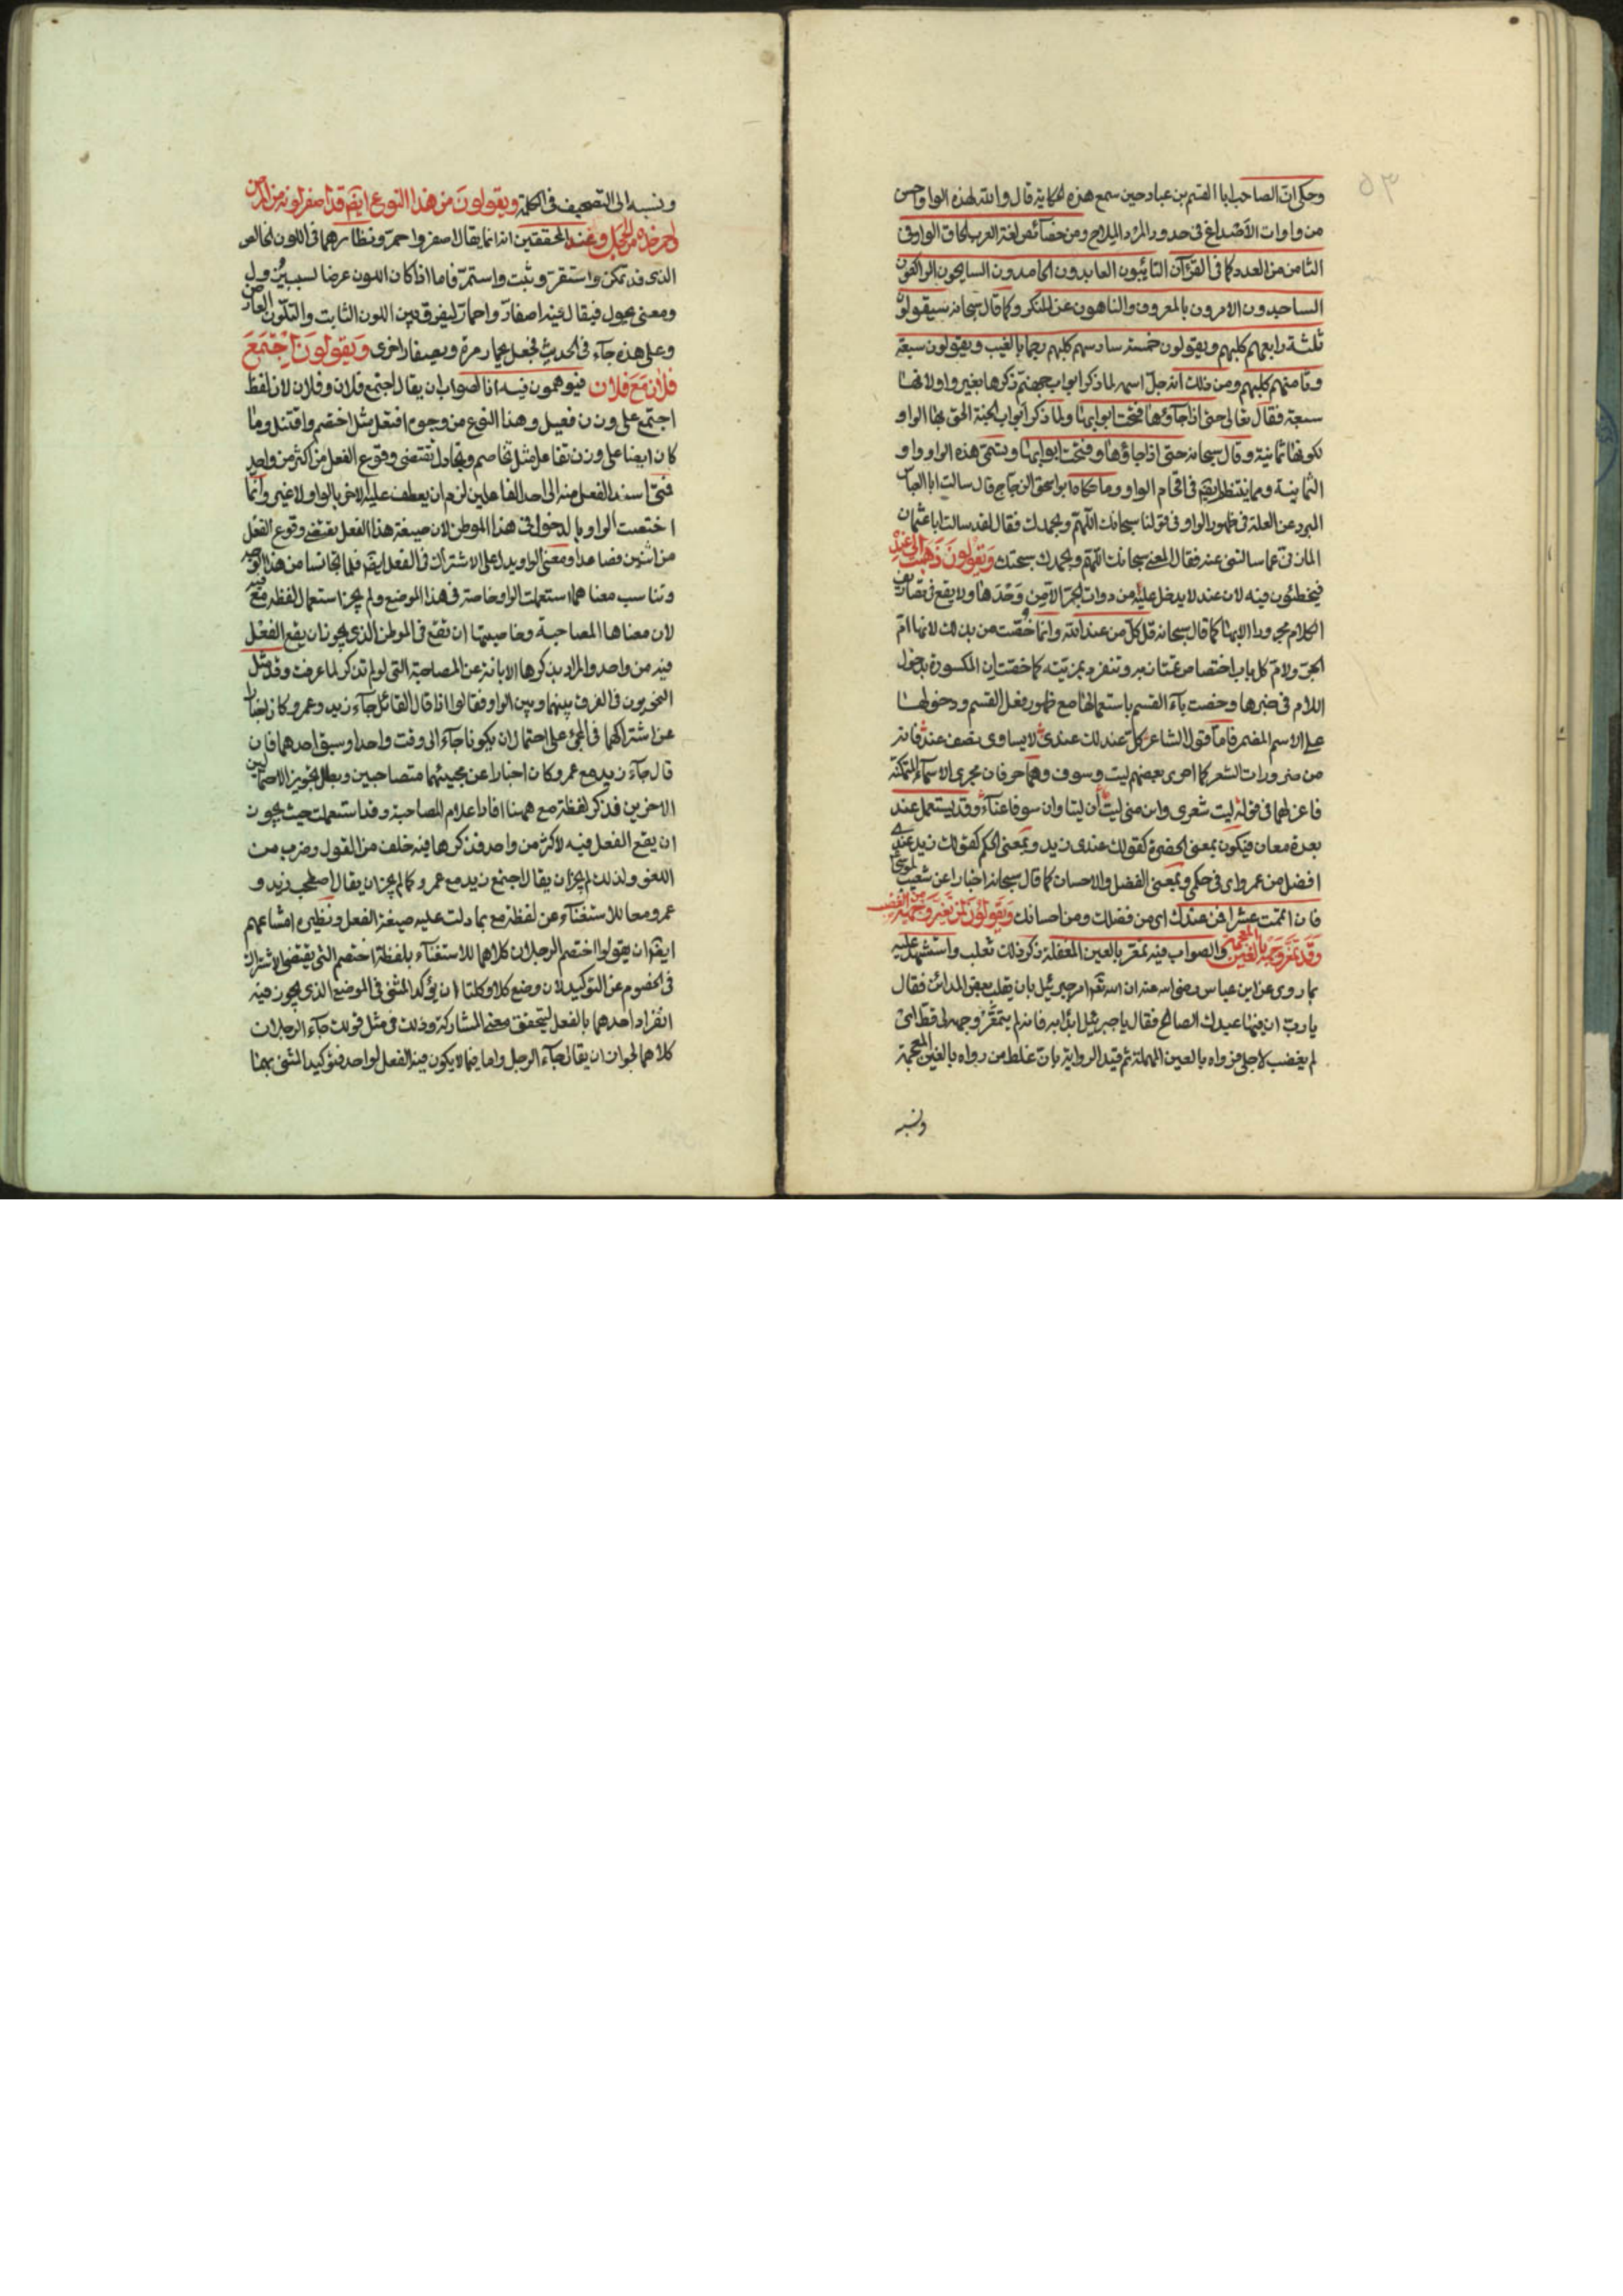 ٥٣
وحكى ان الصاحب ابا القسم بن عباد حين سمع هذه الحكاية قال والله لهذه الواو احسن
من واوات الاصداغ فى حدود المرد الملاح ومن خصآئص لغة العرب الحاق الواو فى
الثامن من العدد كما فى القرآن التآئبون العابدون الحامدون السايحون الراكعون
الساجدون الامرون بالمعروف والناهون عن المنكر وكما قال سبحانه سيقولون
ثلثة رابعهم كلبهم ويقولون خمسة سادسهم كلبهم رجما بالغيب ويقولون سبعة
وثامنهم كلبهم ومن ذلك انه جل اسمه لما ذكر ابواب جهنم ذكرها بغير واو لانها
سبعة فقال تعالى حتى اذا جآؤها فتحت ابوابها ولما ذكر ابواب الجنة الحق بها الواو
لكونها ثمانية وقال سبحانه حتى اذا جاؤها وفتحت ابوابها وتسمى هذه الواو واو
الثمانية ومما ينتظم ايضا فى اقحام الواو وما حكاه ابو اسحق الزجاج قال سالت ابا العباس
المبرد عن العلة فى ظهور الواو فى قولنا سبحانك اللهم وبحمدك فقال لقد سالت ابا عثمان
المازنى عما سالتنى عنه فقال المعنى سبحانك اللهم وبحمدك سبحتك ويقولون ذهبت الى عنده
فيخطئون فيه لان عند لا يدخل عليه من دوات الجر الا من وحدها ولا يقع فى تصاريف
الكلام مجرورا الا بها كما قال سبحانه قل كل من عند الله وانما خصت من بذلك لانها ام
الجر ولام كل باب اختصاص تمتاز به وتنفرد بمزيته كما خصت ان المكسورة بدخول
اللام فى خبرها وخصت بآء القسم باستعمالها مع ظهور فعل القسم ودخولها
على الاسم المضمر فاما قول الشاعر كل عند لك عندى لا يساوى نصف عند فانه
من ضرورات الشعر كما اجرى بعضهم ليت وسوف وهما حرفان مجرى الاسمآء المتمكنة
فاعربهما فى قوله ليت شعرى واين منى ليت ان ليتا وان سوفا عنآء وقد يستعمل عند
بعدة معان فيكون بمعنى الحضرة كقولك عندى زيد وبمعنى الحكم كقولك زيد عندى
افضل من عمرو اى فى حكمى وبمعنى الفضل والاحسان كما قال سبحانه اخبارا عن شعيب لموسى
فان اتممت عشرا فمن عندك اى من فضلك ومن احسانك ويقولون لمن تغير وجهه من الغضب
وقد تمغر وجهه بالغين المعجمة والصواب فيه تمعر بالعين المغفلة ذكر ذلك ثعلب واستشهد عليه
بما روى عن ابن عباس رضى الله عنه ان الله تعالى امر جبرئيل بان يقلب بعض المدائن فقال
يا رب ان فيها عبدك الصالح فقال يا جبرئيل ابدا به فانه لم يتمعر وجهه لى قط اى
لم يغضب لاجلى فرواه بالعين المهملة ثم قيد الرواية بان غلط من رواه بالغين المعجمة
ونسبه
ونسبه الى التصحيف فى الكلمة ويقولون من هذا النوع ايضا قد اصفر لونه من المرض
واحمر خده من الخجل وعند المحققين انه انما يقال اصفر واحمر ونظائرهما فى اللون الخالص
الذى قد تمكن واستقر وثبت واستمر فاما اذا كان اللون عرضا لسبب يزول
ومعنى يحول فيقال فيه اصفار واحمار ليفرق بين اللون الثابت والتلون العارض
وعلى هذه جآء فى الحديث فجعل يحمار مرة ويصفار اخرى ويقولون اجتمع
فلان مع فلان فيوهمون فيه انا الصواب ان يقال اجتمع فلان وفلان لان لفظ
اجتمع على وزن فعيل وهذا النوع من وجوه افتعل مثل اختصم واقتتل وما
كان ايضا على وزن تفاعل مثل تخاصم وتجادل تقتضى وقوع الفعل من اكثر من واحد
فمتى اسند الفعل منه الى احد الفاعلين لزم ان يعطف عليه الاخر بالواو لا غير وانما
اختصت الواو بالدخول فى هذا الموطن لان صيغة هذا الفعل يقتضى وقوع الفعل
من اثنين فصاعدا ومعنى الواو يدل على الاشتراك فى الفعل ايضا فلما تجانسا من هذا الوجه
وتناسب معناهما استعملت الواو خاصة فى هذا الموضع ولم يجز استعمال لفظة مع فيه
لان معناها المصاحبة وخاصيتها ان تقع فى الموطن الذى يجوز ان يقع الفعل
فيه من واحد والمراد بذكرها الابانة عن المصاحبة التى لو لم تذكر لما عرفت وقد مثل
النحويون فى الفرق بينهما وبين الواو فقالوا اذا قال القائل جآء زيد وعمرو كان اخبارا
عن اشتراكهما فى المجئ على احتمال ان يكونا جآءا فى وقت واحد او سبق احدهما فان
قال جآء زيد مع عمرو كان اخبارا عن مجيئهما متصاحبين وبطل تجويز الاحتمالين
الاخرين فذكر لفظة مع ههنا افاد اعلام المصاحبة وقد استعملت حيث يجوز
ان يقع الفعل فيه لاكثر من واحد فذكرها فيه خلف من القول وضرب من
اللغو ولذلك لم يجز ان يقال اجتمع زيد مع عمرو كما لم يجز ان يقال اصطحب زيد و
عمرو معا للاستغنآء عن لفظة مع بما دلت عليه صيغة الفعل ونظيره امتناعهم
ايضا ان يقولوا اختصم الرجلان كلاهما للاستغنآء بلفظة اختصم التى يقتضى الاشتراك
فى الخصوم عن التوكيد لان وضع كلا وكلتا ان يؤكد المثنى فى الموضع الذى يجوز فيه
انفراد احدهما بالفعل ليتحقق معنى المشاركة وذلك فى مثل قولك جآء الرجلان
كلاهما لجواز ان يقال جآء الرجل واما فيما لا يكون فيه الفعل لواحد فتوكيد المثنى بهما